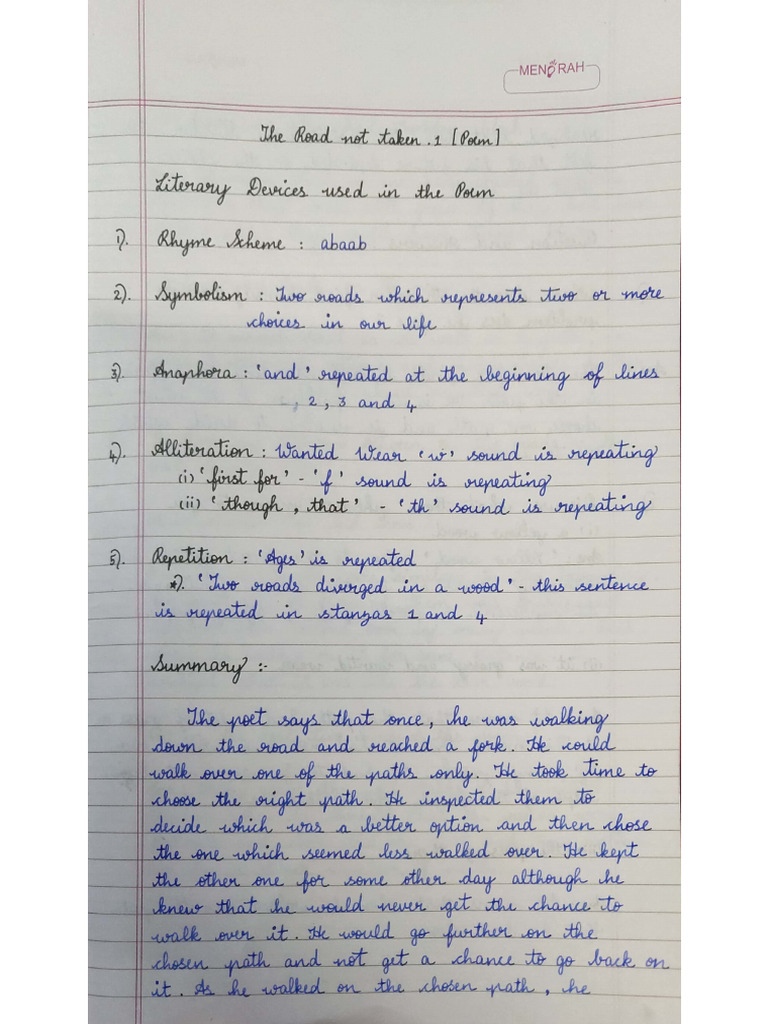 MENORAH
The Road not taken . 1 [Poem]
Literary Devices used in the Poem
1). Rhyme Scheme : abaab
2). Symbolism : Two roads which represents two or more
choices in our life
3). Anaphora : 'and' repeated at the beginning of lines
2, 3 and 4
4). Alliteration : Wanted Wear 'w' sound is repeating
(i) 'first for' - 'f' sound is repeating
(ii) 'though, that' - 'th' sound is repeating
5). Repetition : 'Ages' is repeated
*). 'Two roads diverged in a wood' - this sentence
is repeated in stanzas 1 and 4
Summary :-
The poet says that once, he was walking
down the road and reached a fork. He could
walk over one of the paths only. He took time to
choose the right path. He inspected them to
decide which was a better option and then chose
the one which seemed less walked over. He kept
the other one for some other day although he
knew that he would never get the chance to
walk over it. He would go further on the
chosen path and not get a chance to go back on
it. As he walked on the chosen path, he